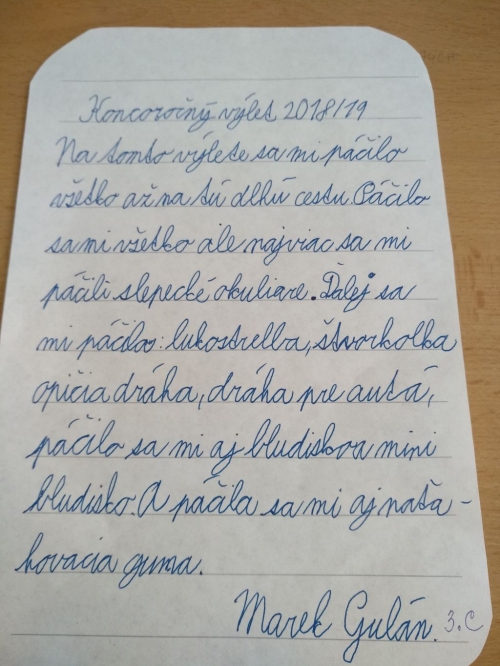 Koncoročný výlet 2018/19
Na tomto výlete sa mi páčilo
všetko až na tú dlhú cestu. Páčilo
sa mi všetko ale najviac sa mi
páčili slepecké okuliare. Ďalej sa
mi páčila: lukostrelba, štvorkolka
opičia dráha, dráha pre autá,
páčilo sa mi aj bludiskova mini
bludisko. A páčila sa mi aj naťa-
hovacia guma.
Marek Gulán. 3.C